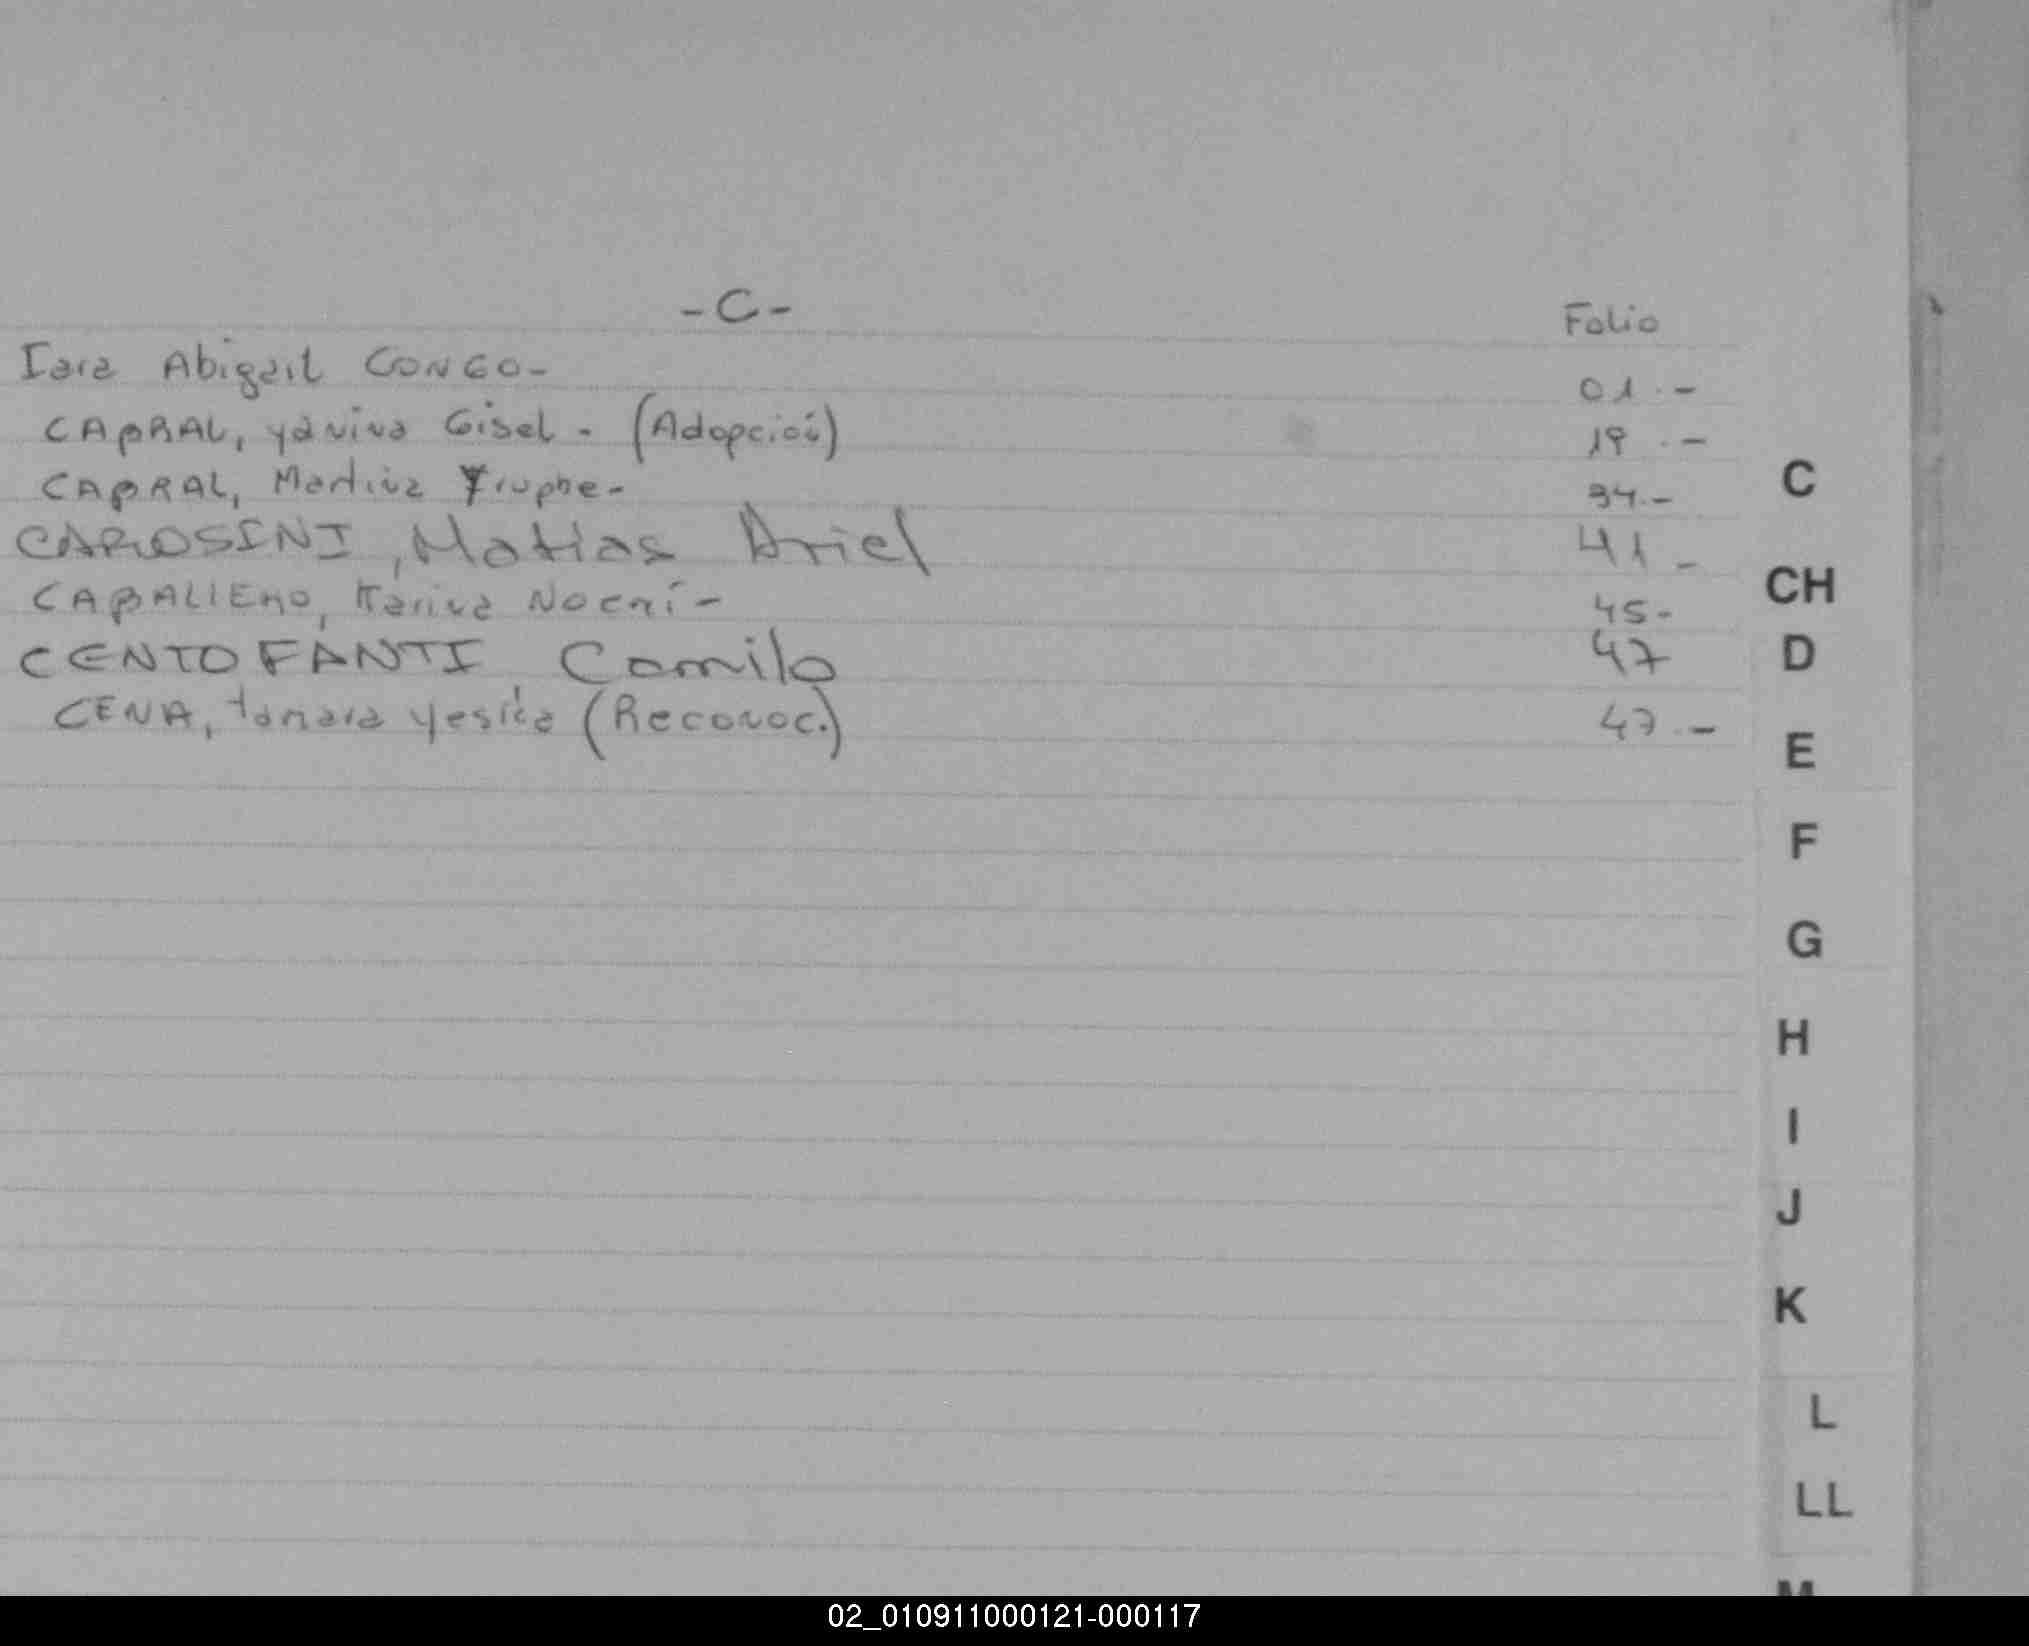 -C- Folio
Iara Abigail CONGO- 01.-
CABRAL, yanina Gisel - (Adopción) 19.-
CABRAL, Martina 34.-
CAROSINI, Matias Ariel 41-
CABALLERO, Karina Noemí- 45-
CENTOFANTI, Camilo 47
CENA, tamara yesica (Reconoc.) 47.-
C
CH
D
E
F
G
H
I
J
K
L
LL
M
02_010911000121-000117